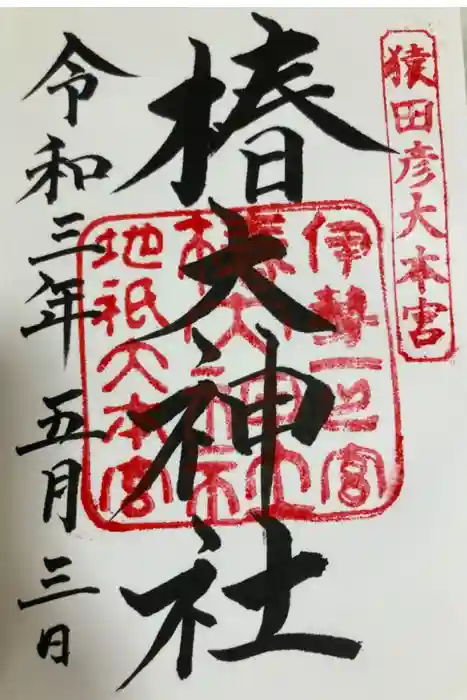 猿田彦大本宮
椿大神社
伊勢一之宮
椿大神社
地祇大本宮
令和三年 五月 三日